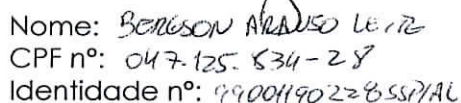 Nome: BERGSON ARAUJO LEITE
CPF nº: 047.125.834-28
Identidade nº: 99001190228SSP/AL